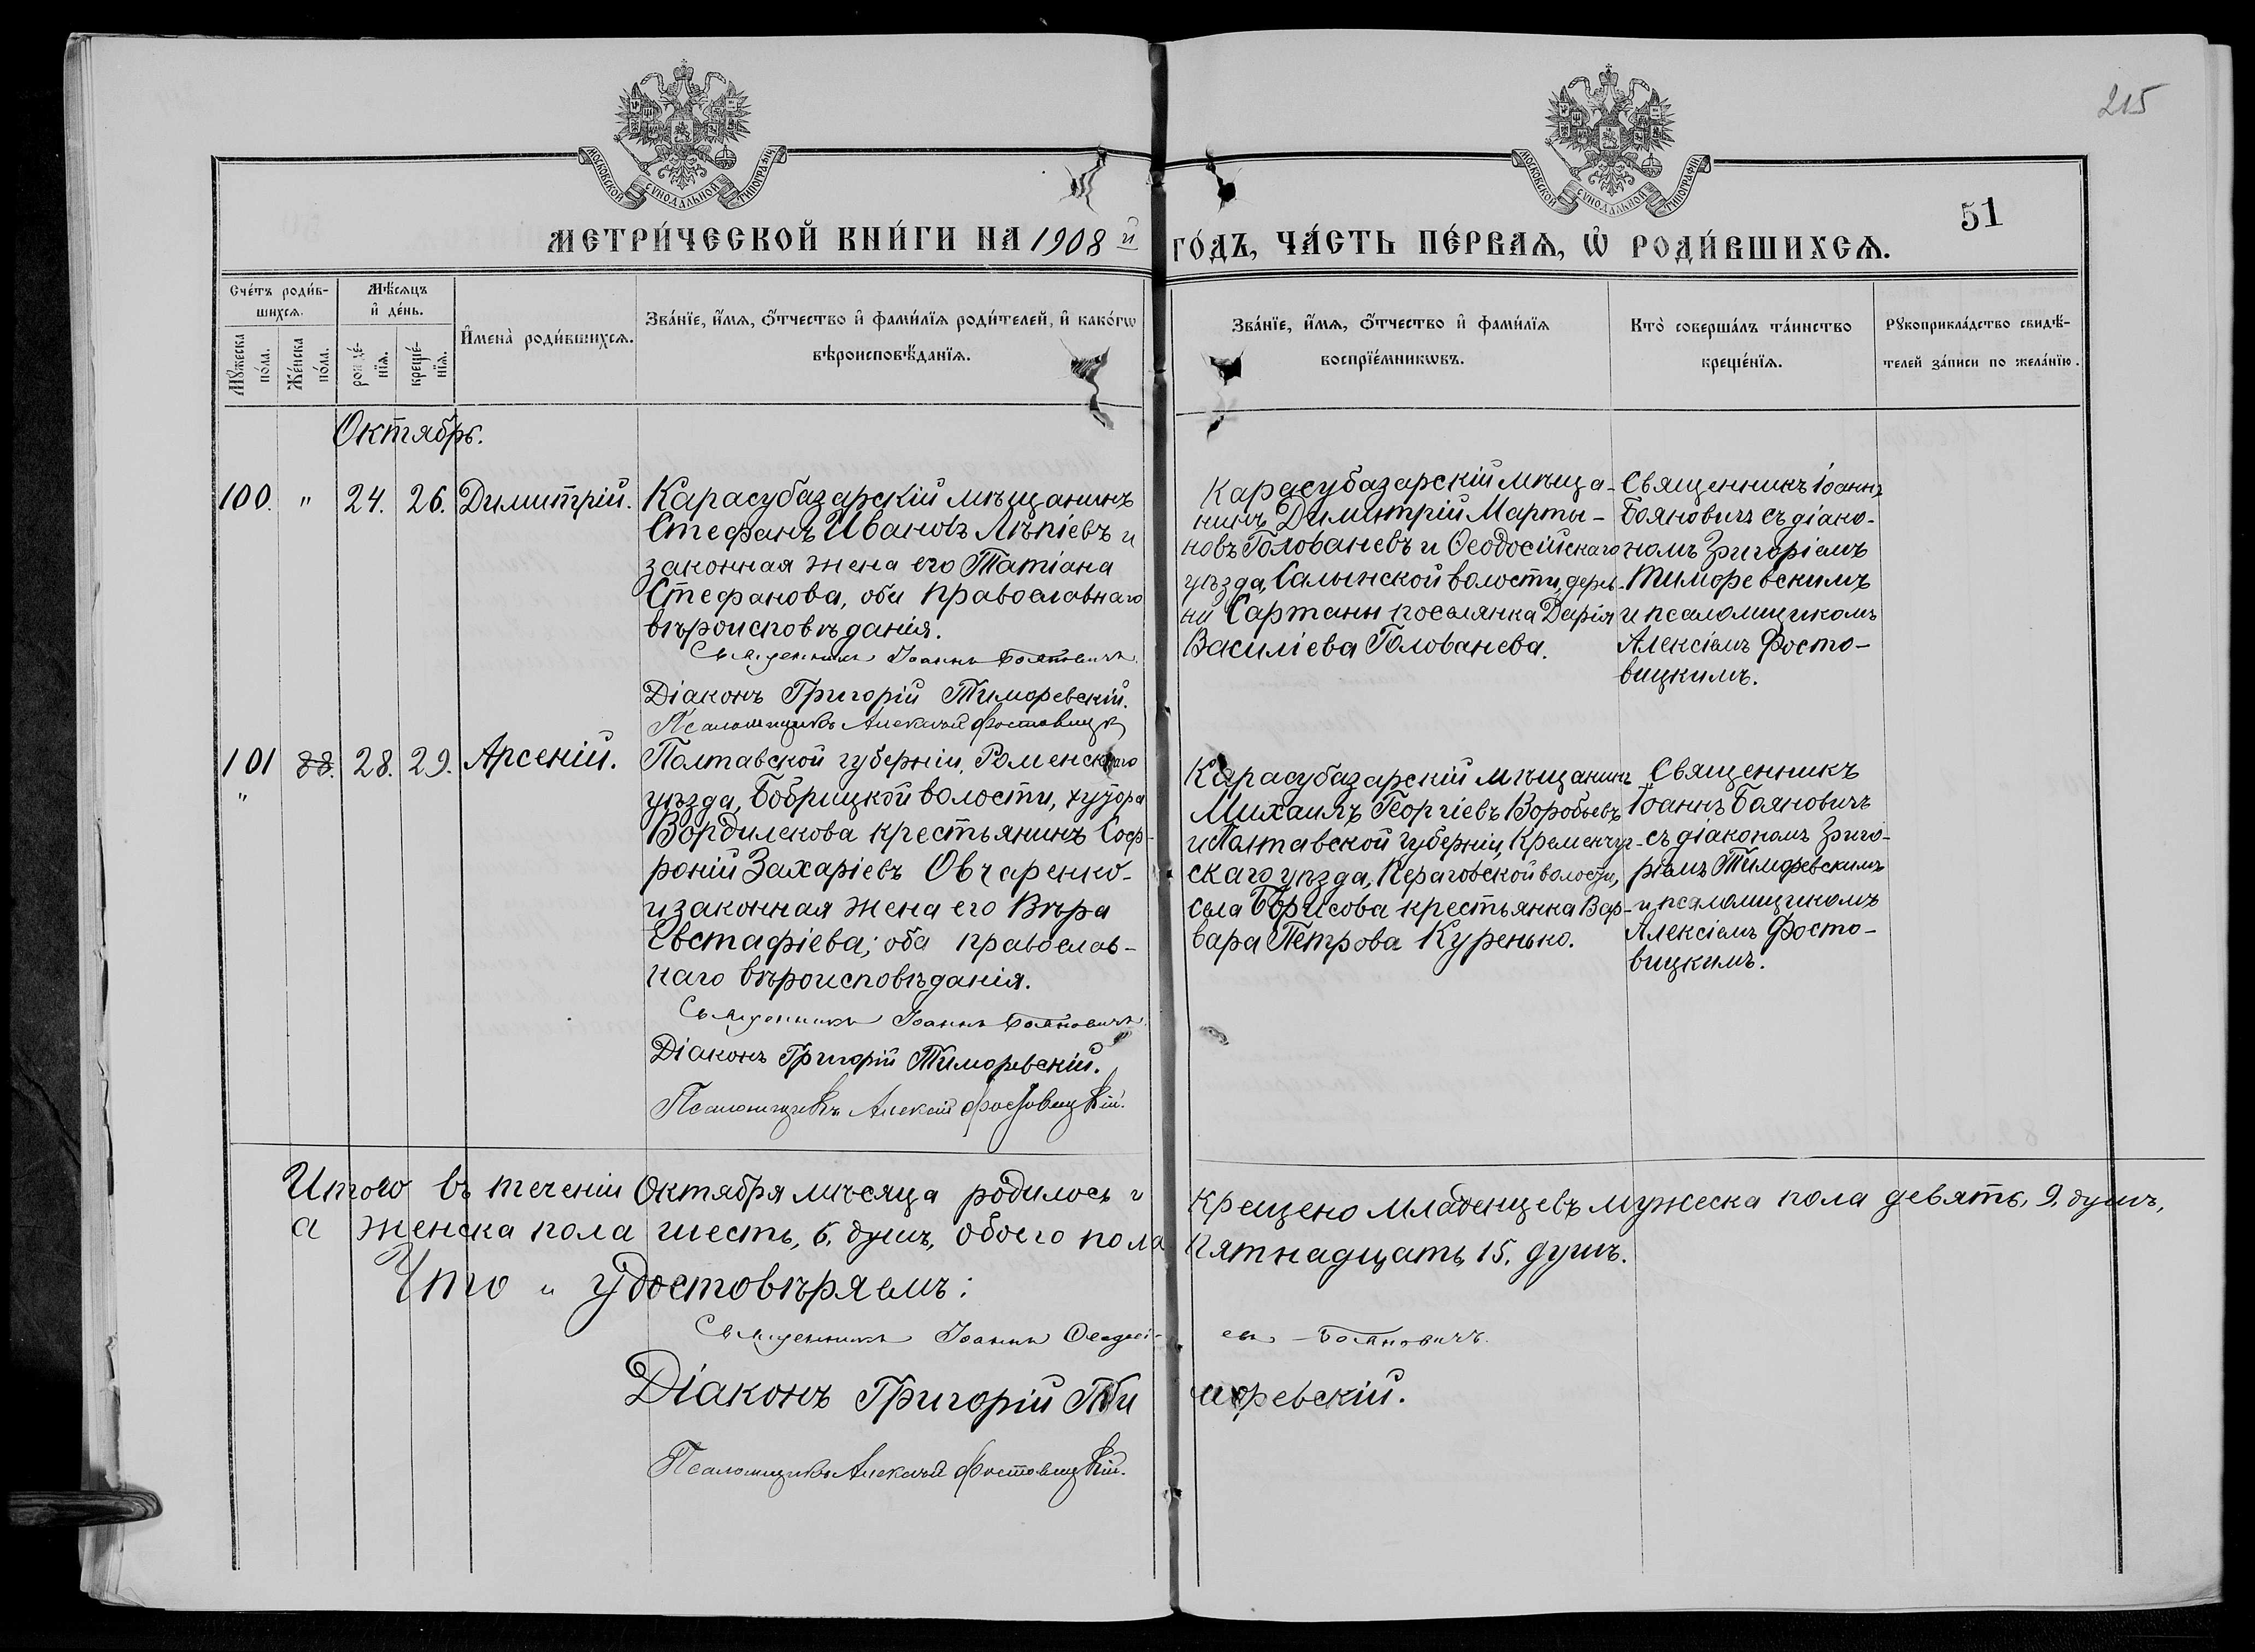 215
МОСКОВСКОЙ СѴНОДАЛЬНОЙ ТИПОГРАФІИ
МОСКОВСКОЙ СѴНОДАЛЬНОЙ ТИПОГРАФІИ
51
МЕТРИ́ЧЕСКОЙ КНИ́ГИ НА 1908 й
ГО́ДЪ, ЧА́СТЬ ПЕ́РВАѦ, Ѡ РОДИ́ВШИХСѦ.
Сче́тъ роди́в-
шихсѧ.
Мꙋ́жеска
по́ла.
Же́нска
по́ла.
Мѣ́сѧцъ
и҆ де́нь.
рожде́-
нїѧ.
креще́-
нїѧ.
И҆мена̀ роди́вшихсѧ.
Зва́нїе, и҆́мѧ, ѻ҆́тчество и҆ фами́лїѧ роди́телей, и҆ како́гѡ
вѣроисповѣ́данїѧ.
Зва́нїе, и҆́мѧ, ѻ҆́тчество и҆ фами́лїѧ
воспрїе́мникѡвъ.
Кто̀ соверша́лъ та́инство
креще́нїѧ.
Рꙋкоприкла́дство свидѣ́-
телей за́писи по жела́нїю.
Октябрь.
100. " 24. 26. Димитрій.
Карасубазарскій мѣщанинъ
Стефанъ Ивановъ Лѣпіевъ и
законная жена его Татіана
Стефанова, оби православнаго
вѣроисповѣданія.
Священникъ Іоаннъ Бояновичъ.
Діаконъ Григорій Тиморевскій.
Псаломщикъ Алексій Фостовицкій
Карасубазарскій мѣща-
нинъ Димитрій Марты-
новъ Голованевъ и Ѳеодосійскаго
уѣзда, Салынской волости, дерев-
ни Сартаны поселянка Дарія
Василіева Голованева.
Священникъ Іоаннъ
Бояновичъ съ діако-
номъ Григоріемъ
Тиморевскимъ
и псаломщикомъ
Алексіемъ Фосто-
вицкимъ.
101 88. 28. 29. Арсеній.
"
Полтавской губерніи, Роменскаго
уѣзда, Бобрицкой волости, хутора
Вордилекова крестьянинъ Соф-
роній Захаріевъ Овчаренко-
и законная жена его Вѣра
Евстафіева; оба православ-
наго вѣроисповѣданія.
Священникъ Іоаннъ Бояновичъ
Діаконъ Григорій Тиморевскій.
Псаломщикъ Алексій Фостовицкій.
Карасубазарскій мѣщанинъ
Михаилъ Георгіевъ Воробьевъ
и Полтавской губерніи, Кременчуг-
скаго уѣзда, Кераговской волости,
села Борисова крестьянка Вар-
вара Петрова Куренько.
Священникъ
Іоаннъ Бояновичъ
съ діакономъ Григо-
ріемъ Тиморевскимъ
и псаломщикомъ
Алексіемъ Фосто-
вицкимъ.
Итого въ теченіи Октября мѣсяца родилось и крещено младенцевъ мужеска пола девять, 9. душъ,
а женска пола шесть, 6. душъ, обоего пола пятнадцать, 15. душъ.
Что и удостовѣряемъ:
Священникъ Іоаннъ Ѳеодосіевъ Бояновичъ.
Діаконъ Григорій Тиморевскій.
Псаломщикъ Алексій Фостовицкій.